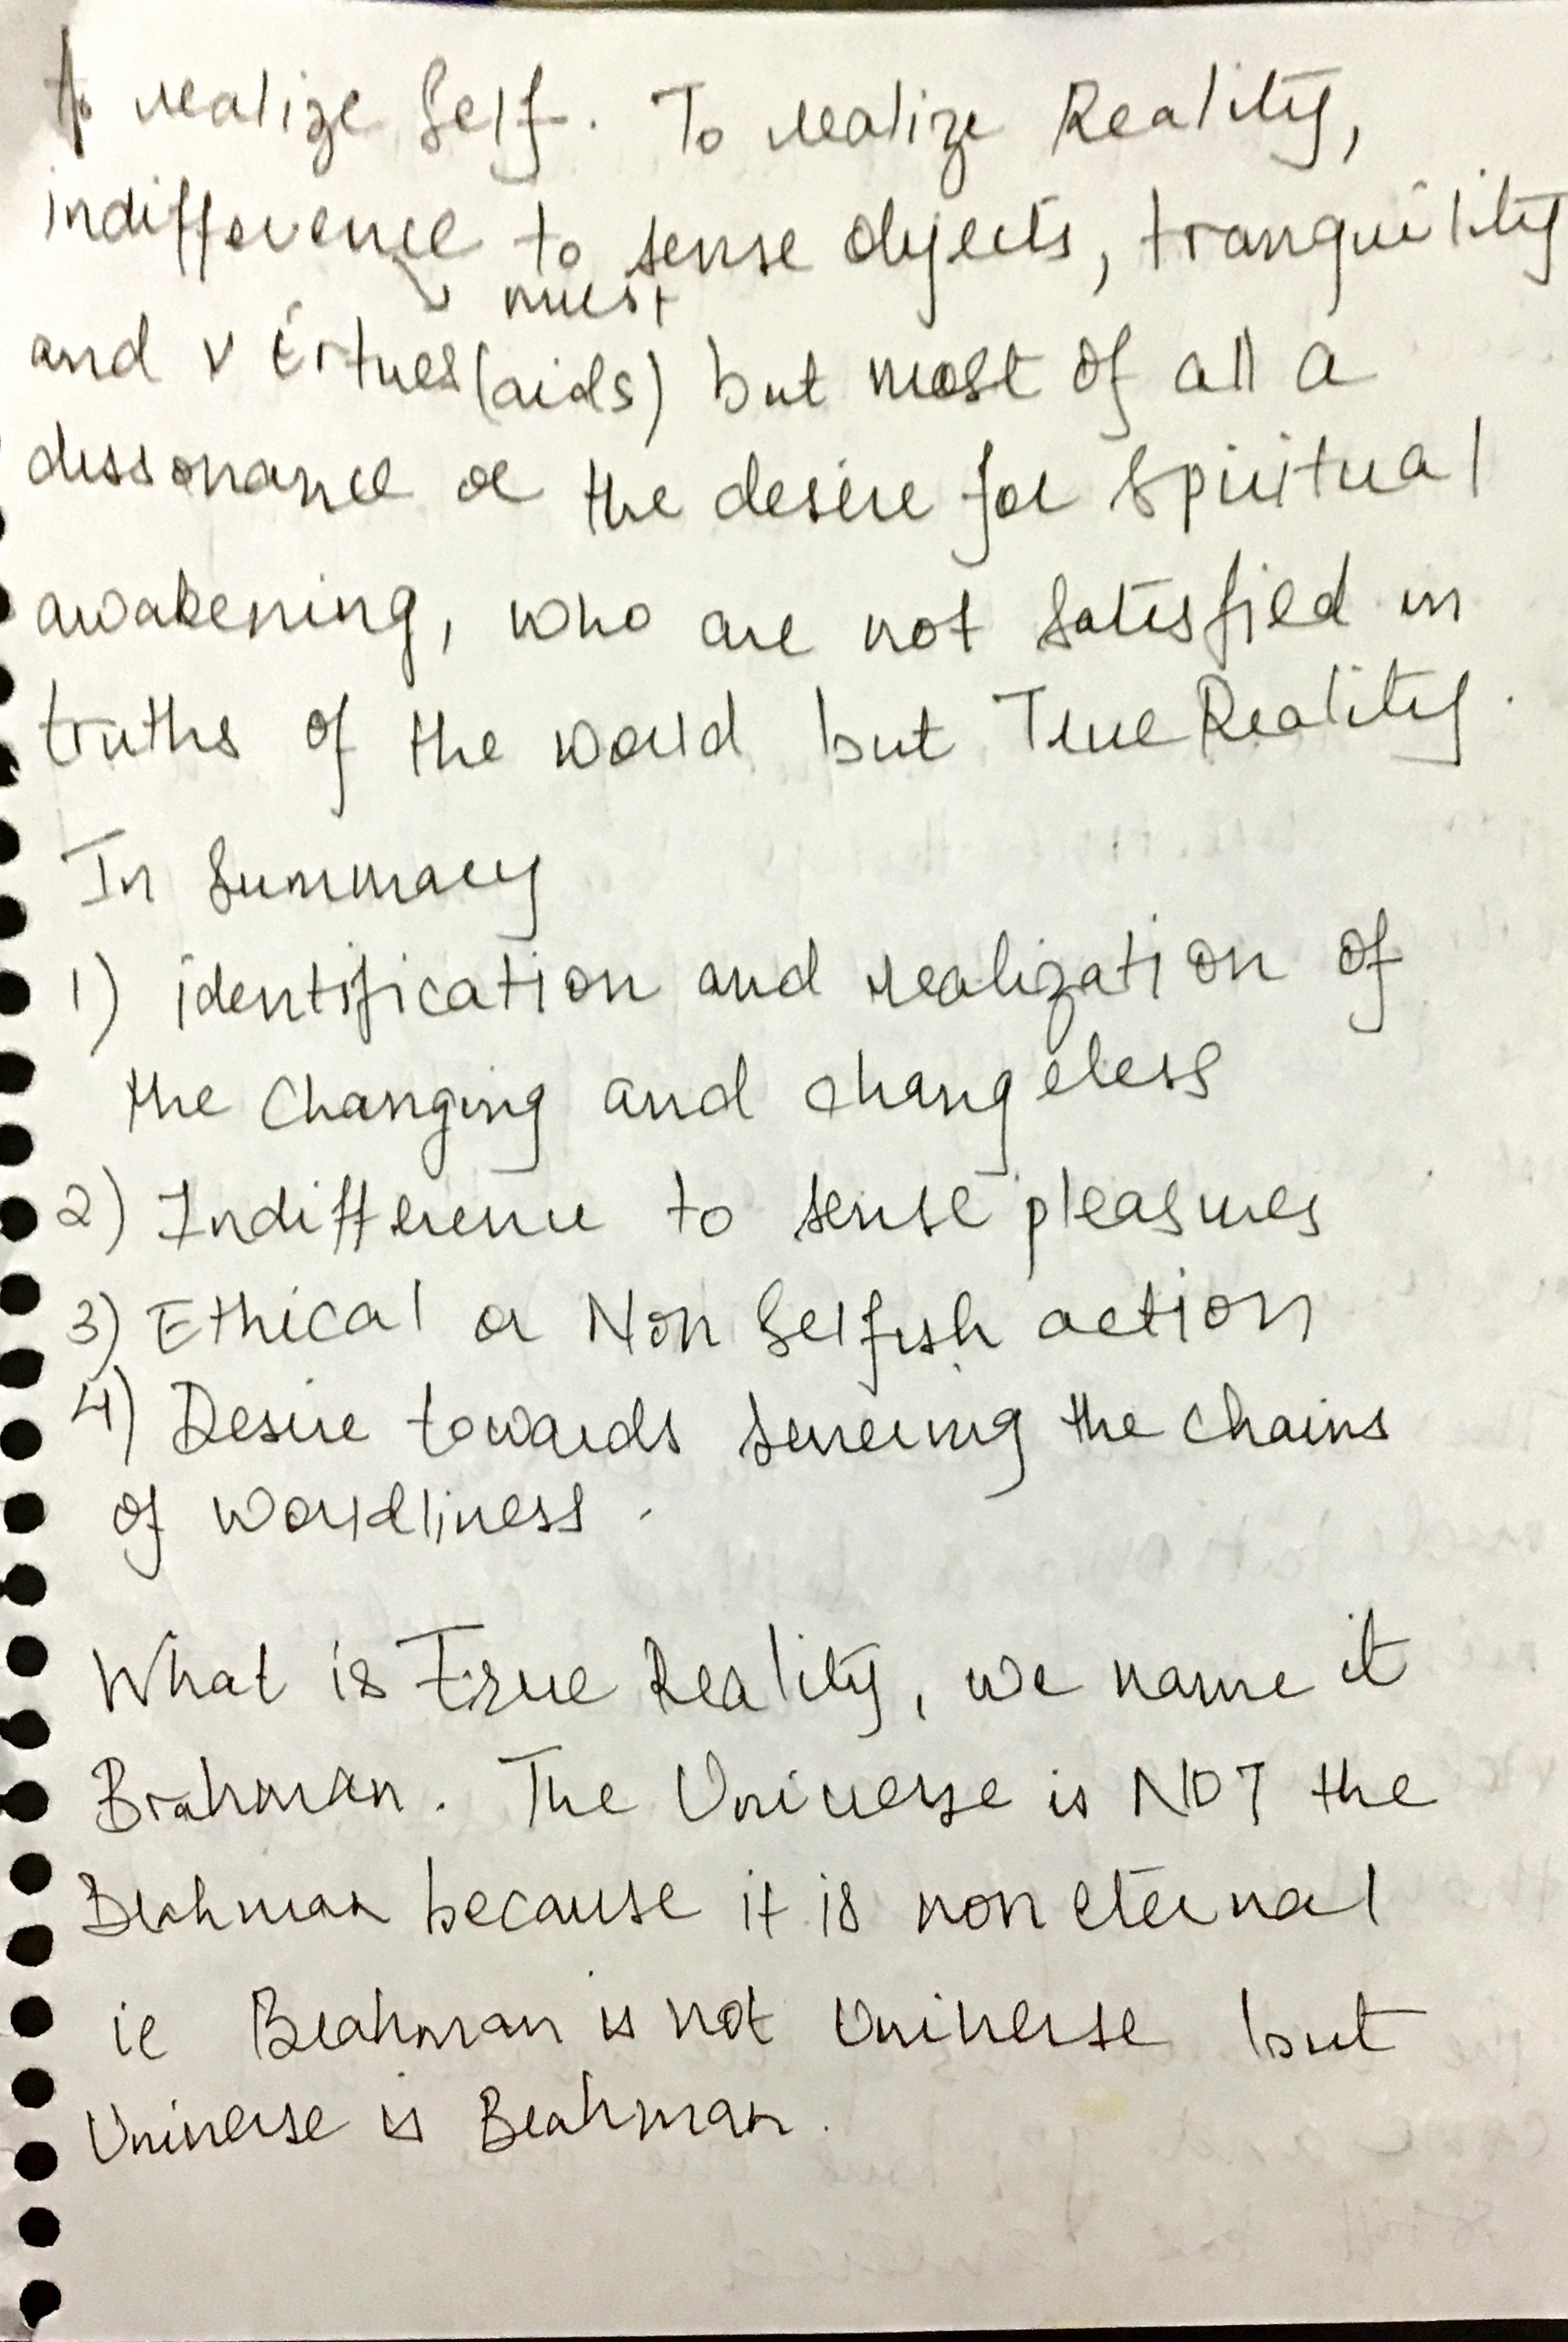 to realize Self. To realize Reality,
indifference to sense objects, tranquility
must
and virtues (aids) but most of all a
dissonance or the desire for spiritual
awakening, who are not satisfied in
truths of the world but True Reality.
In Summary
1) identification and realization of
the changing and changeless
2) Indifference to sense pleasures
3) Ethical or Non Selfish action
4) Desire towards severing the chains
of worldliness.
What is True Reality, we name it
Brahman. The Universe is NOT the
Brahman because it is non eternal
ie Brahman is not Universe but
Universe is Brahman.